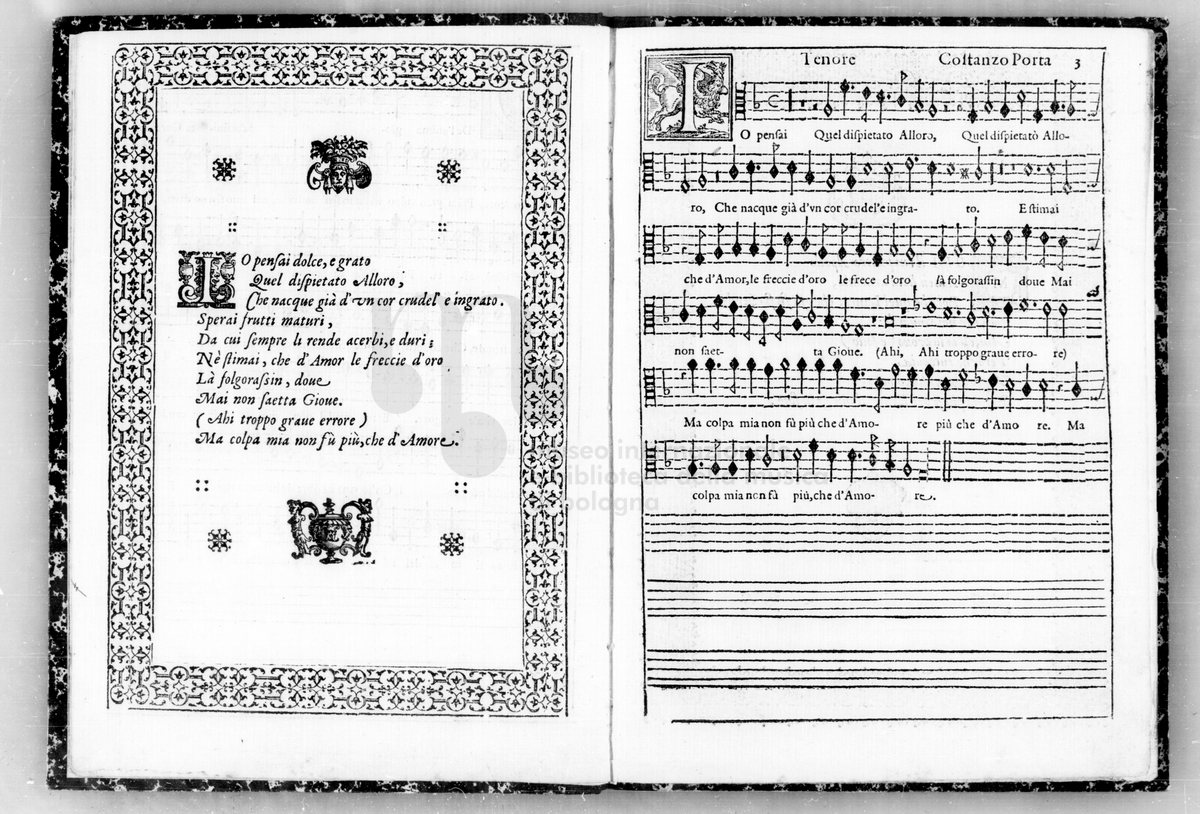 IO pensai dolce, e grato
Quel dispietato Alloro,
Che nacque già d'vn cor crudel' e ingrato.
Sperai frutti maturi,
Da cui sempre li rende acerbi, e duri;
Nè stimai, che d'Amor le freccie d'oro
Là folgorassin, doue
Mai non saetta Gioue.
(Ahi troppo graue errore)
Ma colpa mia non fù più, che d'Amore.
Tenore Costanzo Porta 3
IO pensai Quel dispietato Alloro, Quel dispietatò Allo-
ro, Che nacque già d'vn cor crudel'e ingra- to. E stimai
che d'Amor, le freccie d'oro le frece d'oro là folgorassin doue Mai
non saet- ta Gioue. (Ahi, Ahi troppo graue erro- re)
Ma colpa mia non fù più che d'Amo- re più che d'Amo re. Ma
colpa mia non fù più, che d'Amo- re.
museo internazionale
biblioteca della musica
bologna